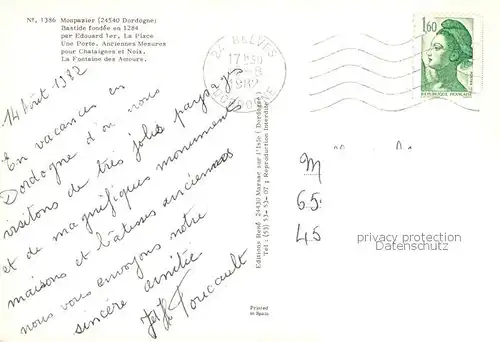 N°. 1386 Monpazier (24540 Dordogne)
Bastide fondée en 1284
par Edouard 1er. La Place
Une Porte. Anciennes Mesures
pour Chataignes et Noix.
La Fontaine des Amours.
14 Août 1982
En vacances en
Dordogne d'où nous
visitons de très jolis paysages
et de magnifiques monuments
maisons et batisses anciennes
nous vous envoyons notre
sincère amitié
Foucault
Editions René 24430 Marsac sur l'Isle (Dordogne)
Tél : (53) 53-53-07 ; Reproduction Interdite
Printed
in Spain
24 BELVES
17H30
1982
DORDOGNE
1,60
REPUBLIQUE FRANÇAISE
M
65.
45
privacy protection
Datenschutz